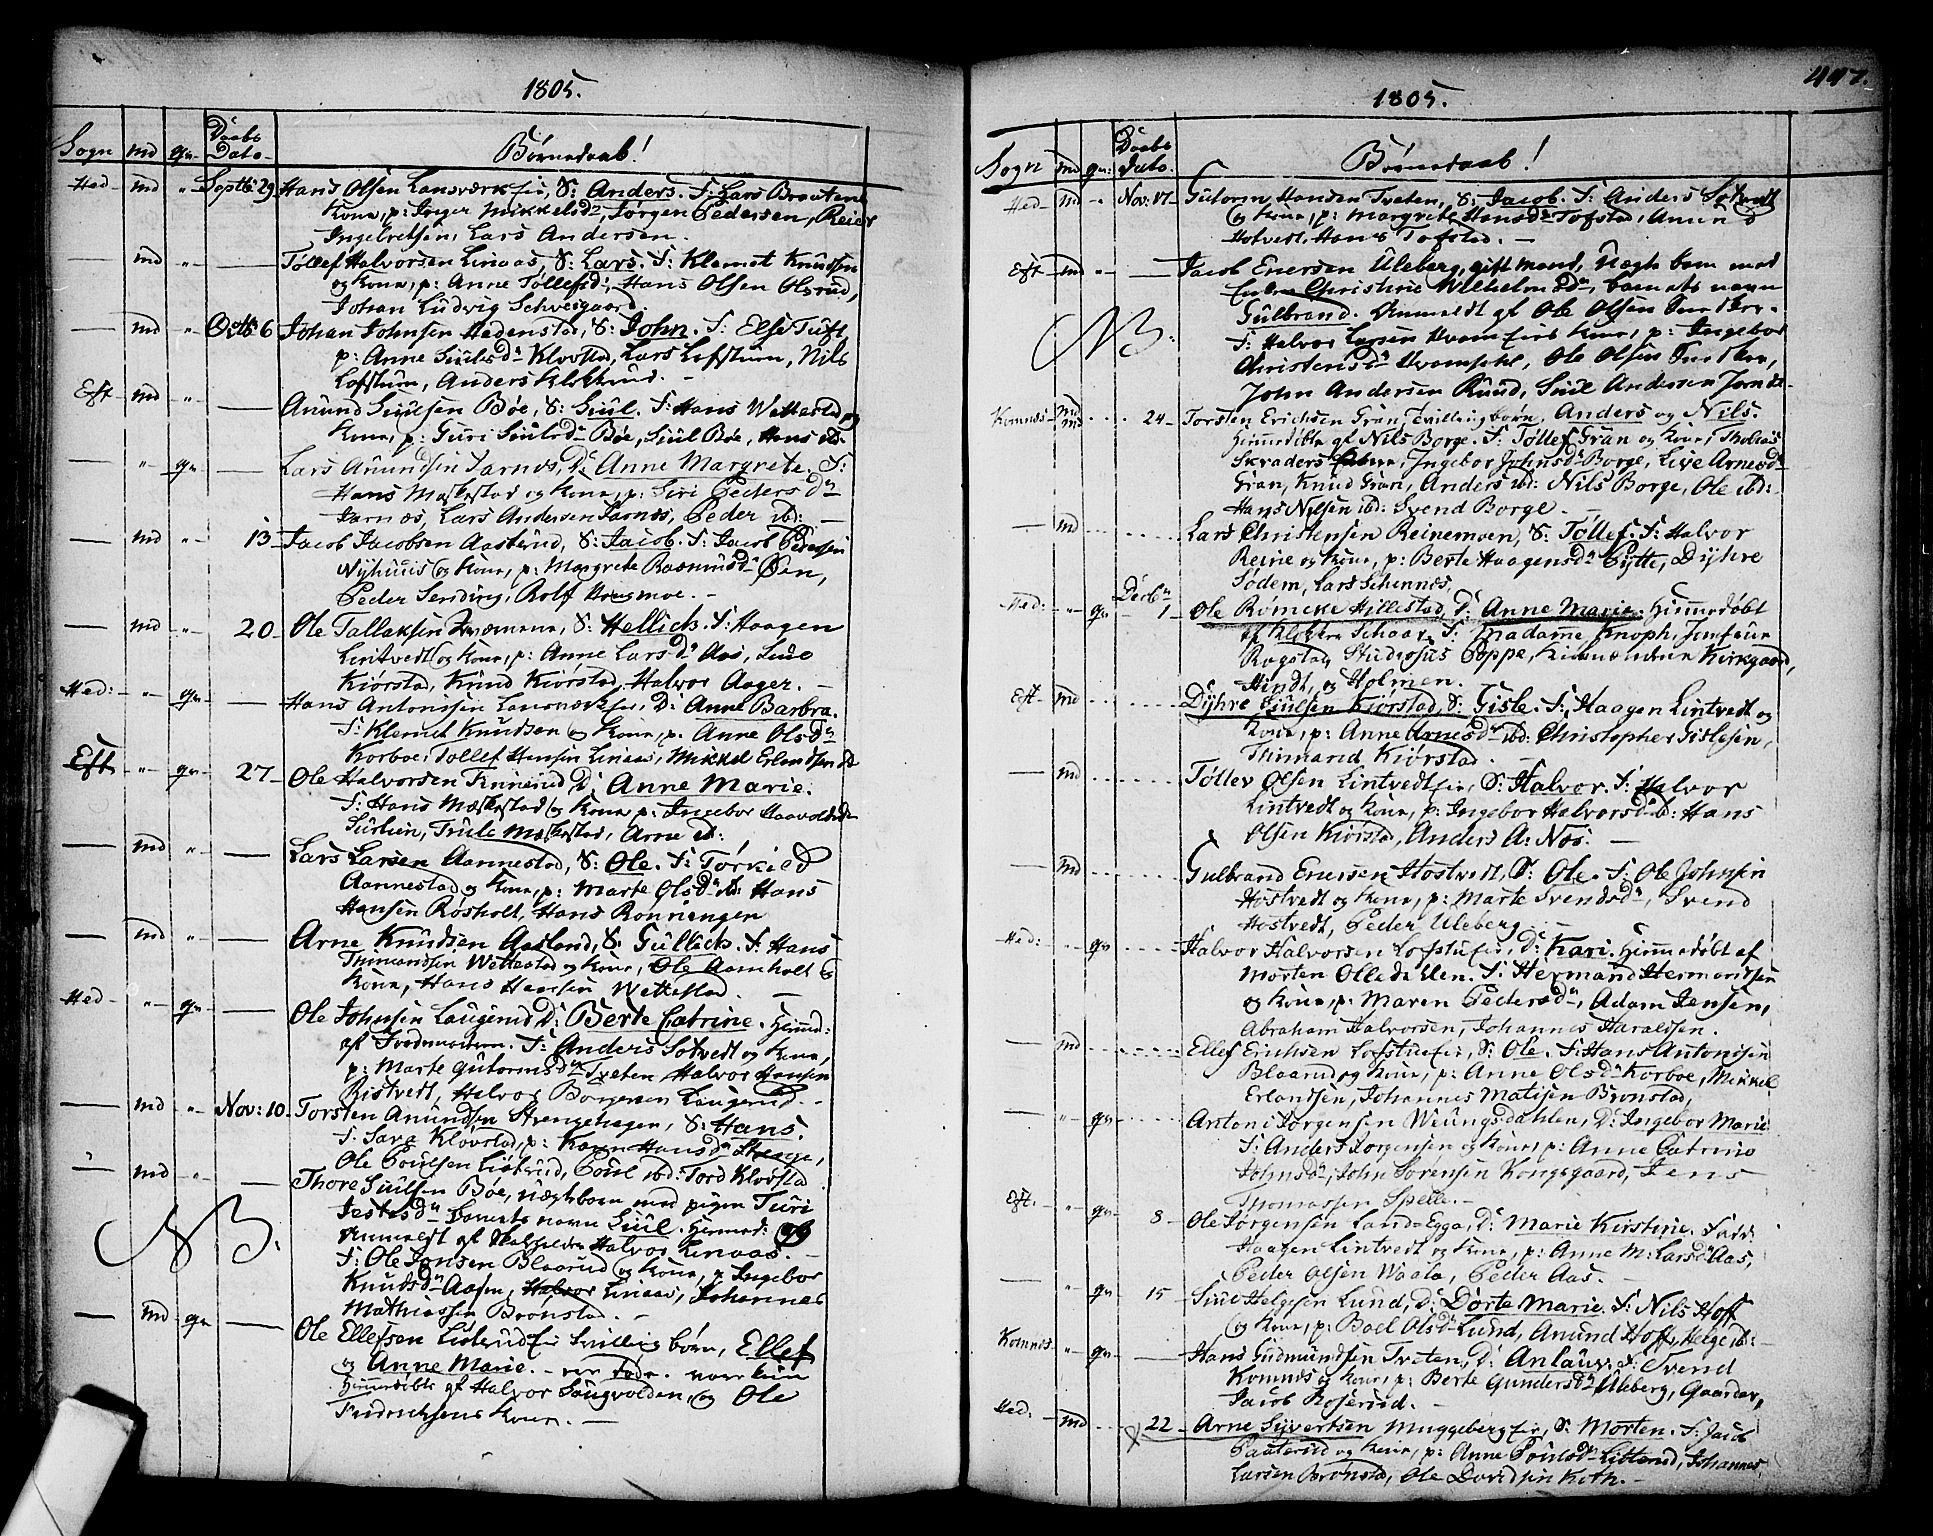 1805.
Sogn md qn Daabs Dato. Børnedaab!
Hed- md " Septb: 29 Hans Olsen Lansværk eje, S: Anders. F: Lars Braaten
Kone, p: Inger Mikkelsdn, Jørgen Pedersen, Reier
Ingebretsen, Lars Andersen.
— md " — Tøllef Halvorsen Linaas, S: Lars. F: Klemet Knudsen
og Kone, p: Anne Tøllefsdn, Hans Olsen Olsrud,
Johan Ludvig Schweigaard.
— md " Octb: 6 Johan Johnsen Hedenstad, S: John. F: Else Tuft
p: Anne Siulsdn Klovstad, Lars Lofsthun, Nils
Lofsthun, Anders Klokkerud. —
Eft md " — Anund Siulsen Bøe, S: Siul. F: Hans Wettestad og
Kone, p: Guri Siulsdn Bøe, Siul Bøe, Hans ibd:
— " qn — Lars Amundsen Jarnes, D: Anne Margrete. F:
Hans Moskestad og Kone, p: Siri Pedersdn
Jarnæs, Lars Andersen Jarnæs, Peder ibd: —
— md " 13 Jacob Jacobsen Aasterud, S: Jacob. F: Jacob Pedersen
Nyhuus og Kone, p: Margrete Rasmusdn Øen,
Peder Sending, Rolf Haugmoe. —
— md " 20 Ole Tallaksen, S: Hellich. F: Haagen
Lintvedt og Kone, p: Anne Larsdn Aas, Siul
Kiørstad, Knud Kiørstad, Halvor Aager. —
Hed: " qn — Hans Antonsen Lansværk eje, D: Anne Barbra.
F: Klemet Knudsen og Kone, p: Anne Olsdn
Korboe, Tøllef Hansen Linaas, Mikkel Erlandsen
Eft " qn 27 Ole Halvorsen D: Anne Marie.
F: Hans Moskestad og Kone p: Ingebor Haavoldsdn
Truls Moskestad, Arne ibd:
— md " — Lars Larsen Aannestad, S: Ole. F: Torkild
Aannestad og Kone, p: Marte Olsdn ibd: Hans
Hansen Røsholt, Hans Ronningen
— md " — Arne Knudsen Aasland, S: Gullich. F: Hans
Thimandsen Wettestad og Kone, Ole Aamholt og
Kone, Hans Hansen Wettestad. —
Hed- " qn — Ole Johnsen Laugerud D: Berte Catrine. Himmd:
af Jordmoeren. F: Anders Sotvedt og Kone,
p: Marte Gutormsdn Tveten Halvor Hansen
Ristvedt, Halvor Borgersen Laugerud. —
— md " Nov: 10 Torsten Anundsen Strengehagen, S: Hans.
F: Sara Kløvstad, p: Karen Hansdn Skrenge,
Ole Poulsen Listerud, Poul ibd: Tord Kløvstad
— md " — Thore Siulsen Bøe, uægte barn med pigen Turi
Jestesdn Barnets navn Siul. Himmed:
NB. anmeldt af Halvor Linaas. —
F: Ole Jonsen Blaarud og Kone, p: Ingebor
Knudsdn Aasen, Halvor Linaas, Johannes
Mathiassen Brønstad. —
— md qn — Ole Ellefsen Listerud eje Tvilling børn, Ellef
og Anne Marie. — var døde.
Himmedøbte af Halvor Saugvolden, og Ole
Fredrichsens Kone. —
447.
1805.
Sogn md qn: Daabs Dato. Børnedaab!
Hed- md " Nov: 17 Gutorm Hansen Tveten, S: Jacob. F: Anders Sotvedt
og Kone, p: Margrete Hansdn Tofstad, Amund
Hotvedt, Hans Tofstad. —
Eft md " — Jacob Enersen Uleberg, gift mand, Uægte barn med
Christine Wilhelmsdn, barnets navn
Gulbrand. Anmeldt af Ole Olsen
NB. F: Halvor Larsen Kone, p: Ingebor
Christensdn Ole Olsen
John Andersen Ruud, Siul Andersen
Komnæs md md 24 Torsten Erichsen Gran, Tvilling børn, Anders og Nils.
Himmedøbte af Nils Borge. F: Tøllef Gran og Kone, Tholias
Skraders Ingebor Johnsdn Borge, Lise Arnesdn
Gran, Knud Gran, Anders ibd: Nils Borge, Ole ibd:
Hans Nilsen ibd: Svend Borge. —
— md Lars Christensen Reinemoen, S: Tøllef. F: Halvor
Reine og Kone, p: Berte Haagensdn Pytte, Dyhre
Sødem, Lars Schennes.
Hed: " qn Decbr 1 Ole Romcke Hillestad, D: Anne Marie. Himmedøbt
af Klokker Schaar. F: Madamme Knoph, Jomfrue
Rogstad, Studiosus Poppe, Kirkgaard,
Hindt, og Holmen.
Eft md Dyhre Siulsen Kiørstad, S: Gisle. F: Haagen Lintvedt og
Kone, p: Anne Arnesdn ibd: Christopher Gislesen,
Thimand Kiørstad.
— md Tøllev Olsen Lintvedt eje, S: Halvor. F: Halvor
Lintvedt og Kone, p: Ingebor Halvorsdn ibd: Hans
Olsen Kiørstad, Anders A: Nos. —
— md Gulbrand Enersen Hostvedt, S: Ole. F: Ole Johnsen
Hostvedt og Kone, p: Marte Svendsdn, Svend
Hostvedt, Peder Uleberg. —
Hed: " qn Halvor Halvorsen Lofstu eje, D: Kari. Himmedøbt af
Morten Olledalen. F: Hermand Hermandsen
og Kone, p: Maren Pedersdn, Adam Jensen,
Abraham Halvorsen, Johannes Haraldsen.
— md Ellef Erichsen Lofstu eje, S: Ole. F: Hans Antonisen
Blaarud og Kone, p: Anne Olsdn Korboe, Mikkel
Erlandsen, Johannes Matisen Brønstad,
— " qn Antoni Jørgensen Weungsdahlen, D: Ingebor Marie
F: Anders Jorgensen og Kone, p: Anne Catrine
Johnsdn, John Sørensen Kongsgaard, Jens
Thomassen Spelle. —
Eft. " qn 8 Ole Jørgensen Land=Egga, D: Marie Kirstine. Fadd:
Haagen Lintvedt og Kone, p: Anne M: Larsdn Aas,
Peder Olsen Waala, Peder Aas. —
— " qn 15 Siul Helgesen Lund, D: Dorte Marie. F: Nils Hoff
og Kone, p: Boel Olsdn Lund, Anund Hoff, Helge ibd: —
Komnes " qn — Hans Gudmundsen Tveten, D: Anlaug. F: Svend
Komnes og Kone, p: Berte Gundersdn Uleberg, Gaarder,
Jacob Roserud. —
Hed: md 22 Arne Syvertsen Muggeberg eje, S: Morten. F: Jacob
Paaterud og Kone, p: Anne Poulsdn Litterud, Johannes
Larsen Brønstad, Ole Davidsen Keth. —